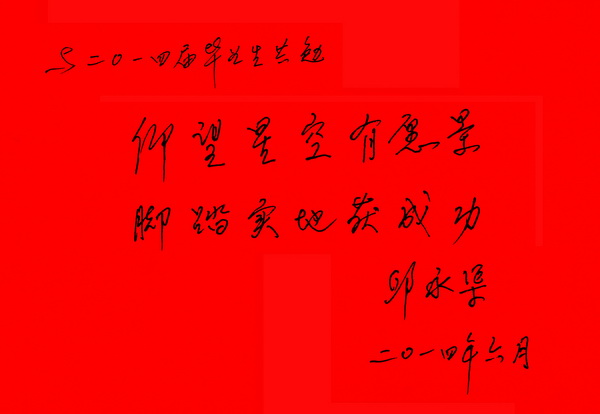 与二〇一四届毕业生共勉
仰望星空有愿景
脚踏实地获成功
邱永渠
二〇一四年六月